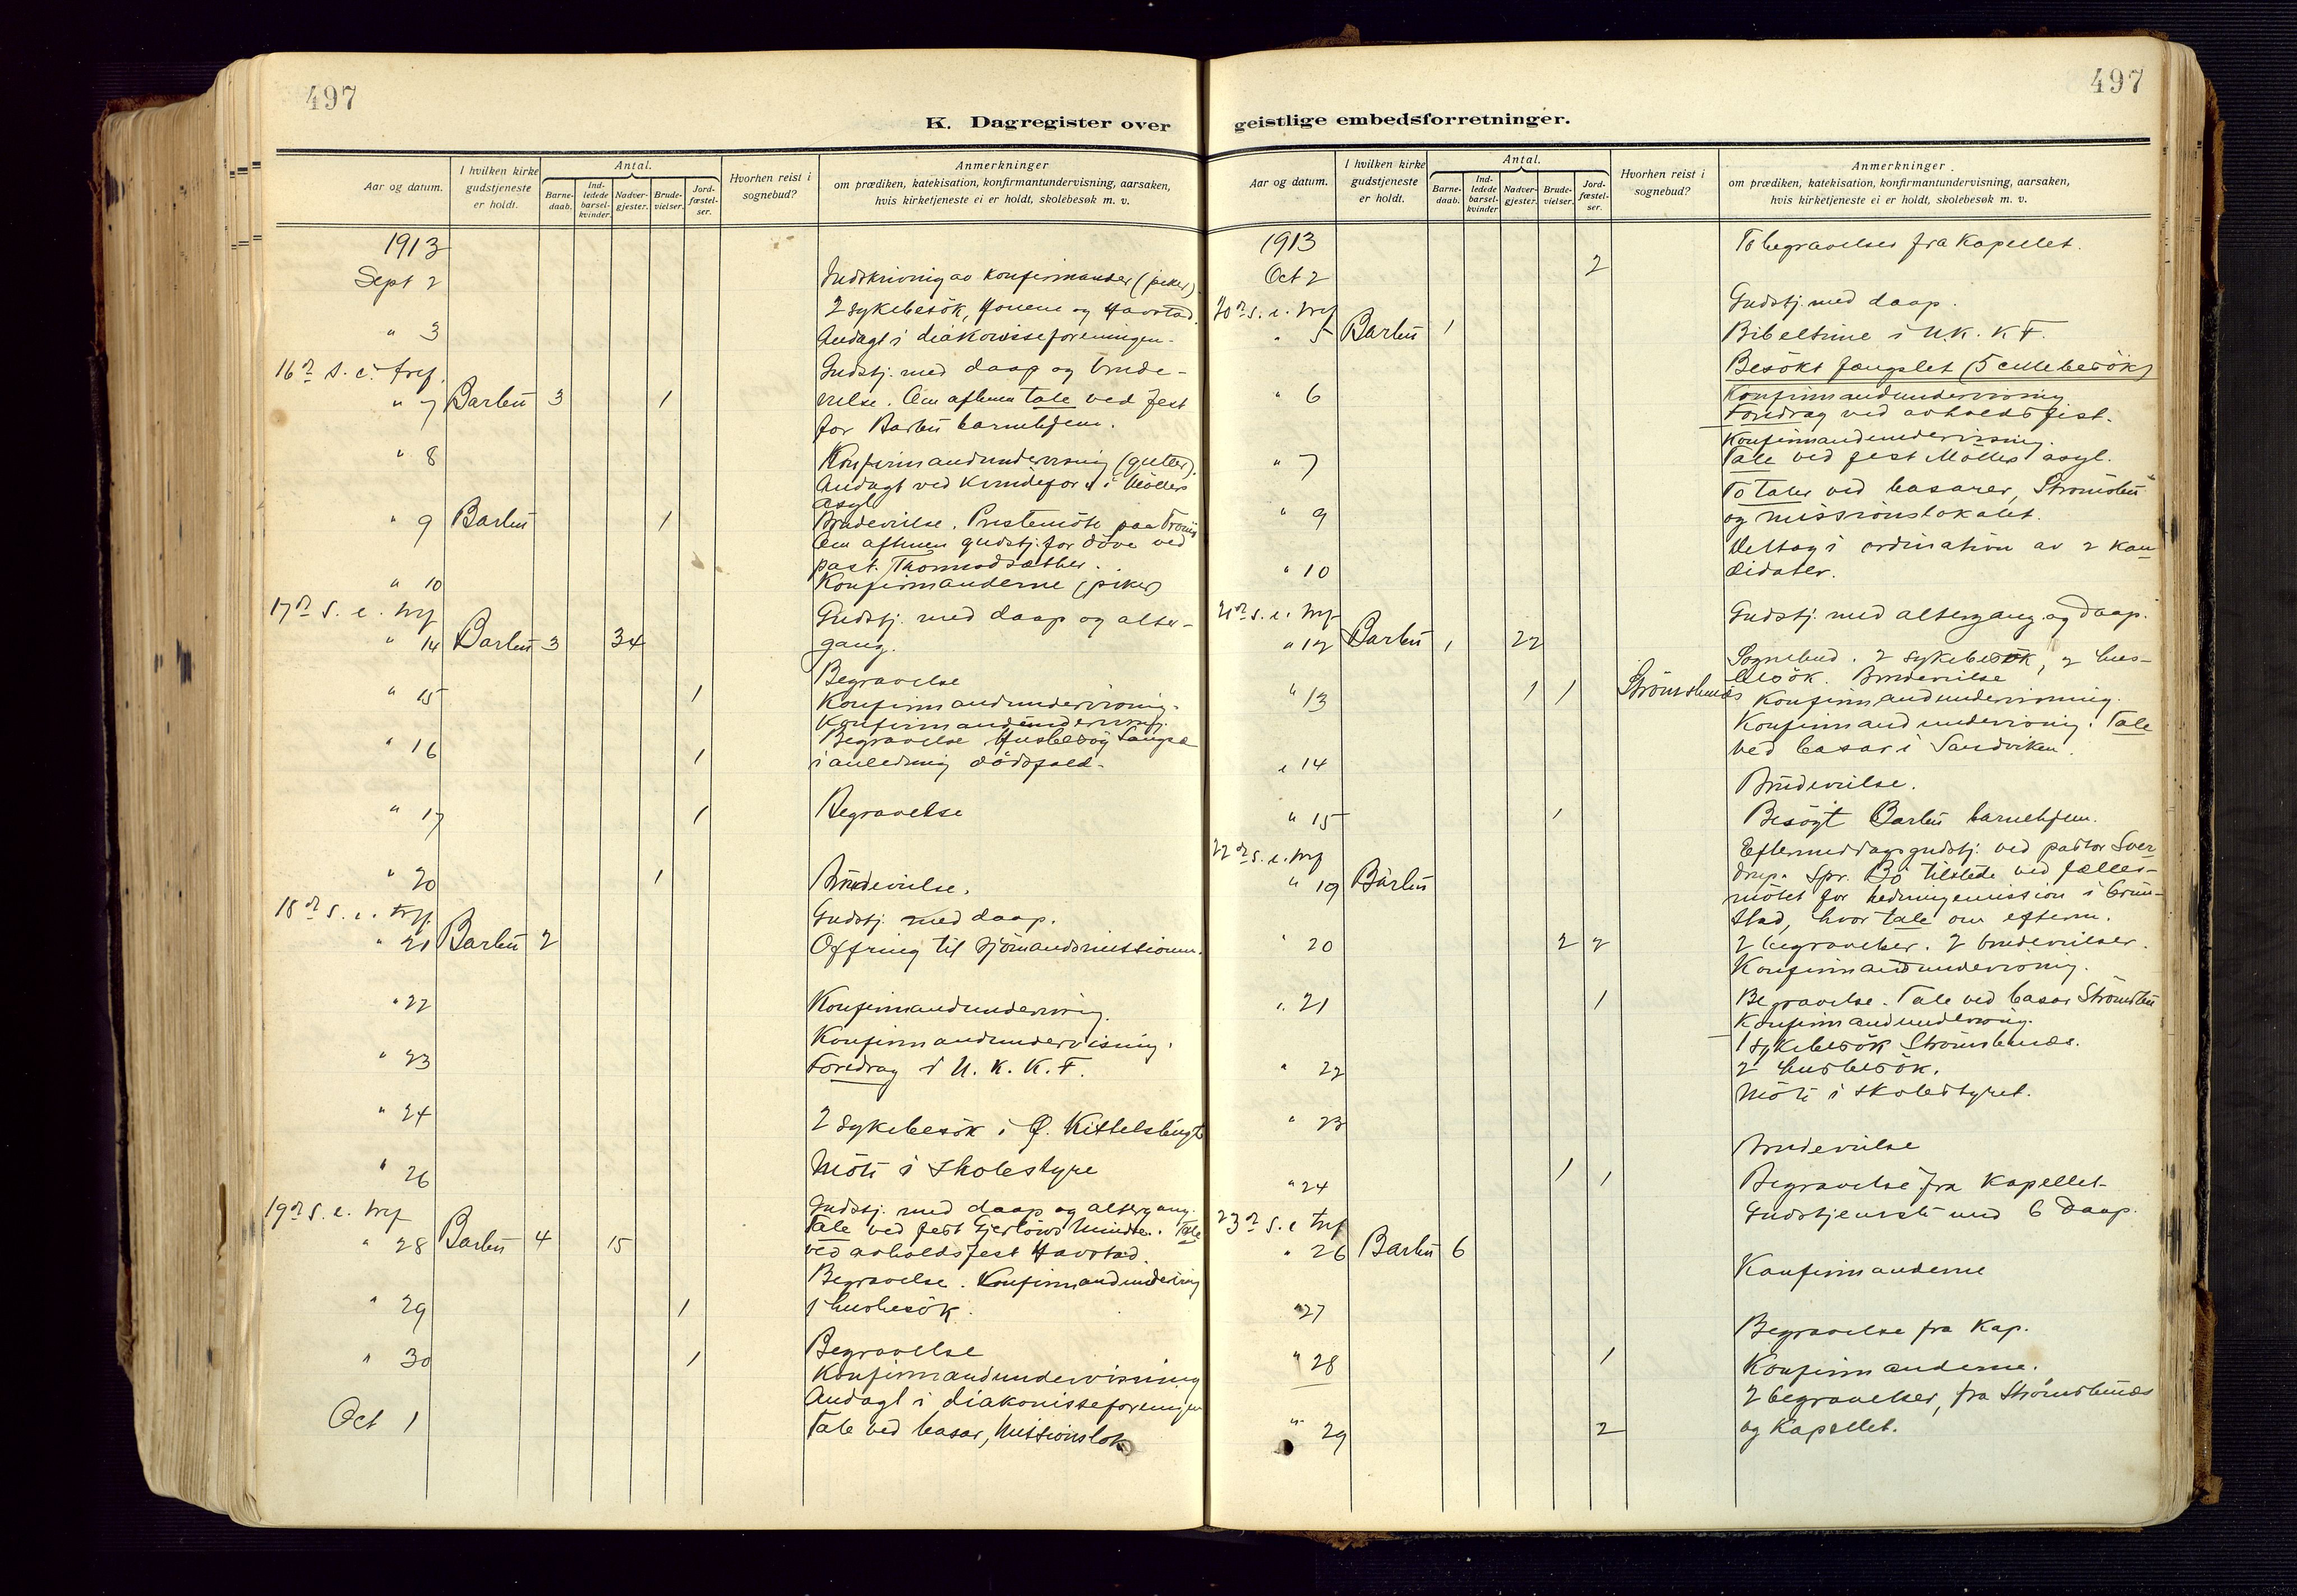 497
K. Dagregister over
Aar og datum.
I hvilken kirke gudstjeneste er holdt.
Antal.
Barne-daab.
Ind-ledede barsel-kvinder.
Nadver-gjester.
Brude-vielser.
Jord-fæstel-ser.
Hvorhen reist i sognebud?
Anmerkninger
om prædiken, katekisation, konfirmantundervisning, aarsaken,
hvis kirketjeneste ei er holdt, skolebesøk m. v.
1913
Sept 2 Indskrivning av konfirmander (piker).
2 sykebesök, og Havstad.
" 3 Andagt i diakonisseforeningen.
16de s. e. tref. Gudstj. med daap og brude-
" 7 Barbu 3 1 vielse. Om aftenen tale ved fest
for Barbu barnehjem.
" 8 Konfirmandundervisning (gutter).
Andagt ved kvindefor. i Möllers
asyl
" 9 Barbu 1 Brudevielse. Prestemöte paa Tromö
Om aftenen gudstj. for döve ved
past. Thormodsæther.
" 10 Konfirmanderne (piker)
17de s. e. tref Gudstj. med daap og alter-
" 14 Barbu 3 34 gang.
Begravelse
" 15 1 Konfirmandundervisning.
Konfirmandundervisning.
" 16 Begravelse Husbesög Langsæ
1 i anledning dödsfald.
" 17 1 Begravelse
" 20 1 Brudevielse.
18de s. e. tref. Gudstj. med daap.
" 21 Barbu 2 Offring til sjömandsmissionen.
" 22 Konfirmandundervisning.
Konfirmandundervisning.
" 23 Foredrag i U. K. K. F.
" 24 2 sykebesök i Ø. Kittelsbugt
" 26 Möte i skolestyre
19de s. e. tref Gudstj. med daap og altergang.
Tale ved fest Gjerlöws Minde. Tale
" 28 Barbu 4 15 ved avholdsfest Havstad.
Begravelse. Konfirmandundervisning
" 29 1 1 husbesök.
" 30 1 Begravelse
Konfirmandundervisning
Andagt i diakonisseforeningen
Oct 1 Tale ved basar, Missionslok
497
geistlige embedsforretninger.
Aar og datum.
I hvilken kirke gudstjeneste er holdt.
Antal.
Barne-daab.
Ind-ledede barsel-kvinder
Nadver-gjester.
Brude-vielser.
Jord-fæstel-ser.
Hvorhen reist i sognebud?
Anmerkninger.
om prædiken, katekisation, konfirmantundervisning, aarsaken,
hvis kirketjeneste ei er holdt, skolebesøk m. v.
1913 To begravelser fra Kapellet.
Oct 2 2
20de s. e. tref Gudstj. med daap.
" 5 Barbu 1 Bibeltime i U.K. K F.
Besökt fængslet (5 cellebesök)
" 6 Konfirmandundervisning
Foredrag ved avholdsfest.
Konfirmandundervisning.
" 7 Tale ved fest Möllers asyl.
To taler ved basarer, Strömsbu
" 9 og missionslokalet.
Deltog i ordination av 2 kan-
" 10 didater.
21de s. e. tref Gudstj. med altergang og daap.
" 12 Barbu 1 22
Sognebud. 2 sykebesök, 2 hus-
besök. Brudevielse
" 13 1 1 Strömsbunæs Konfirmandundervisning.
Konfirmandundervisning. Tale
ved basar i Sandviken.
" 14
Brudevielse.
" 15 1 Besögt Barbu barnehjem.
22de s. e. tref Eftermiddagsgudstj. ved pastor Sver-
" 19 Barbu drup. Spr. Bö tilstede ved fælles-
mötet for hedningemission i Grim-
stad, hvor tale om efterm.
" 20 2 2 2 begravelser. 2 brudevielser.
Konfirmandundervisning.
" 21 1 Begravelse. Tale ved basar Strömsbu
Konfirmandundervisning.
1 sykebesök Strömsbunæs.
" 22 2 husbesök.
Möte i skolestyret.
" 23
Brudevielse
" 24 1 1 Begravelse fra Kapellet
23de s. e tref Gudstjeneste med 6 daap.
" 26 Barbu 6
Konfirmanderne
" 27
Begravelse fra Kap.
" 28 1 Konfirmanderne.
2 begravelser, fra Strömsbunæs
" 29 2 og Kapellet.